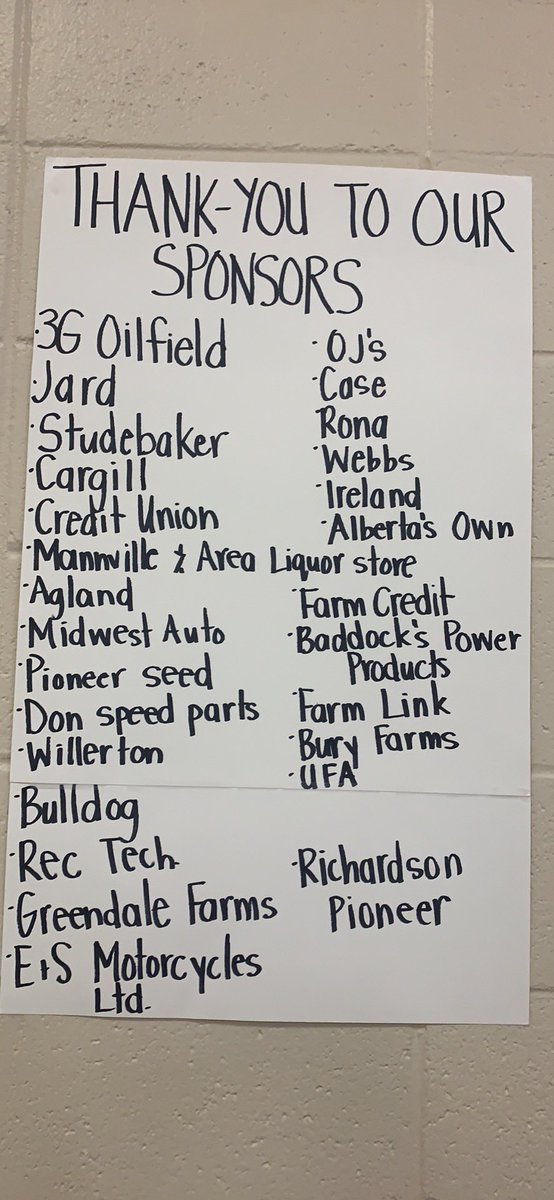 THANK-YOU TO OUR
SPONSORS
·3G Oilfield
·Jard
·Studebaker
·Cargill
·Credit Union
·Mannville & Area Liquor store
·Agland
·Midwest Auto
·Pioneer seed
·Don speed parts
·Willerton
·Bulldog
·Rec Tech
·Greendale Farms
·E+S Motorcycles
Ltd.
·OJ's
·Case
Rona
·Webbs
·Ireland
·Alberta's Own
·Farm Credit
·Baddock's Power
Products
·Farm Link
·Bury Farms
·UFA
·Richardson
Pioneer